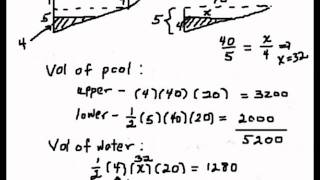 5
4
4
5
x
4
40/5 = x/4 ⇒
x=32
Vol of pool :
upper - (4)(40)(20) = 3200
lower - 1/2 (5)(40)(20) = 2000
5200
Vol of water :
32
1/2 (4)(x)(20) = 1280